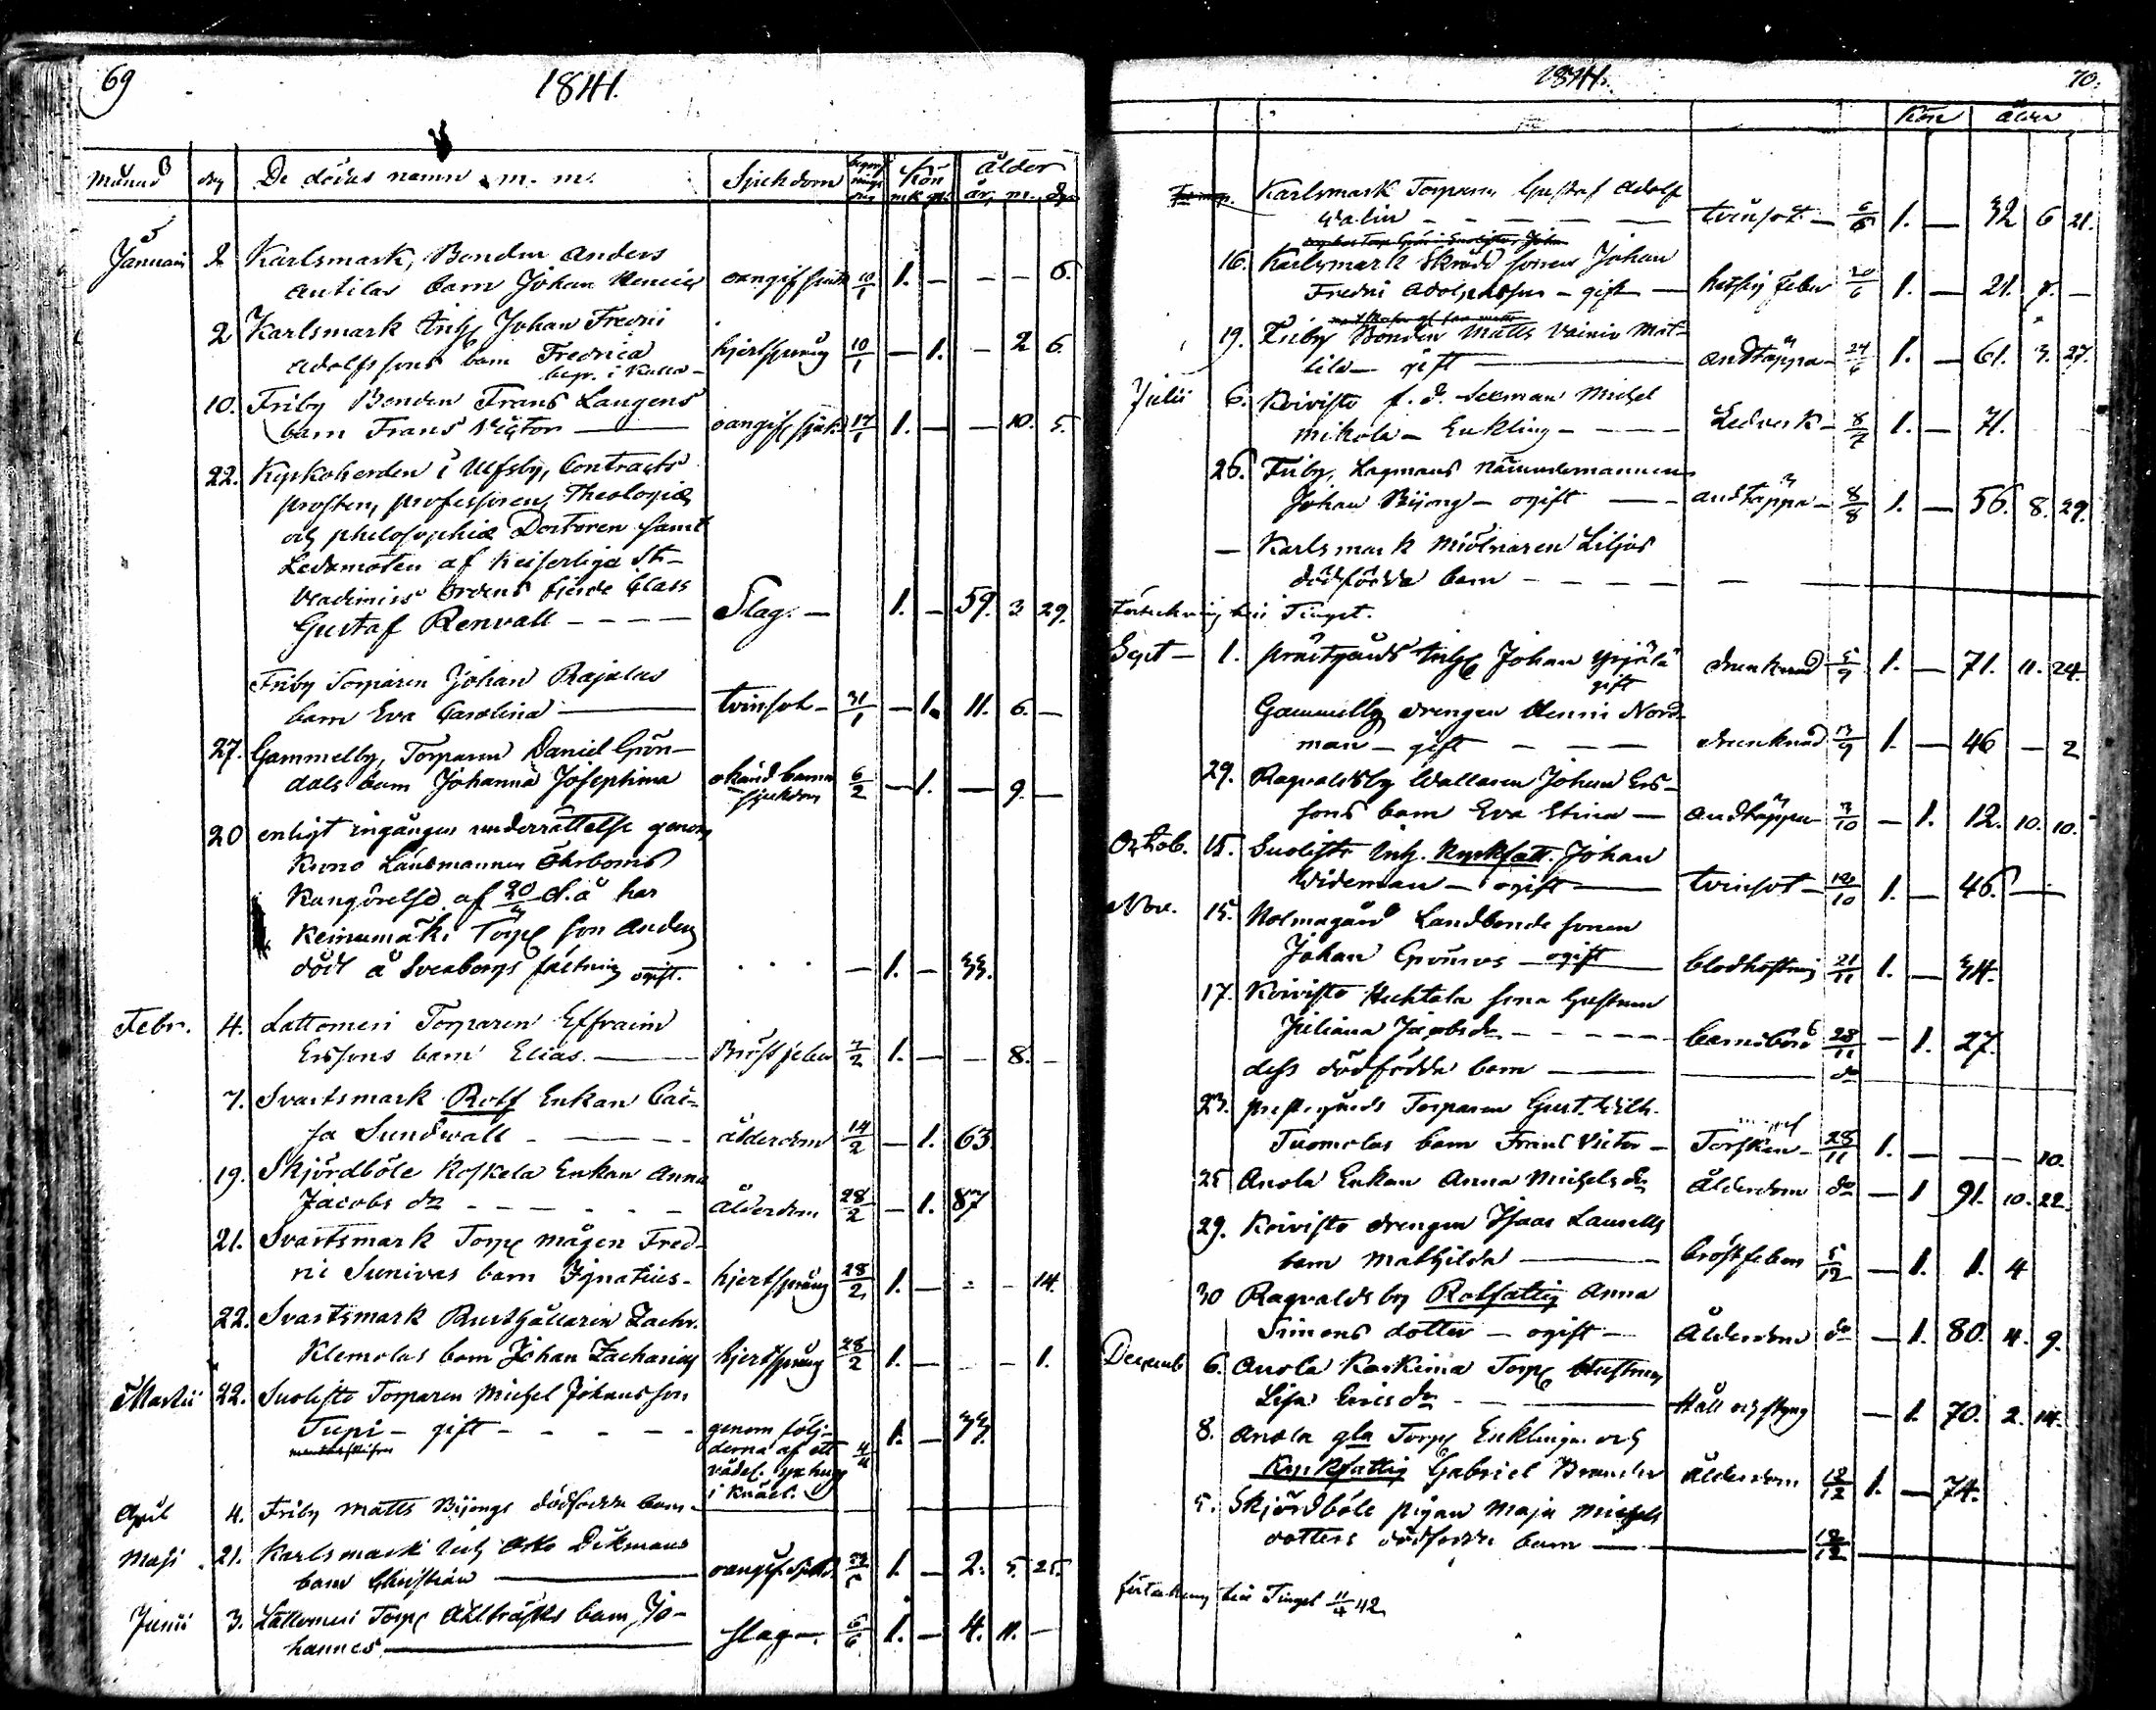 69
1841.
Månad dag De dödas namn m. m. Sjukdom begrafnings dag Kön mk qk ålder år, m. dgr
Januari 2 Karlsmark, Bonden Anders
Antilas barn Johan Henric oangif sjukd 10/1 1. — — — 6.
2 Karlsmark Inh Johan Fredric
Adolfssons barn Fredrica hjertsprång 10/1 — 1. — 2 6.
10. Friby Bonden Frans Laugens
barn Frans Victor — oangif sjukd 17/1 1. — — 10. 5.
22. Kyrkoherden i Ulfsby, Contracts
prosten, professoren, Theologiæ
och philosophiæ Doctoren samt
Ledamoten af Keiserliga St-
Vladimirs Ordens fjerde Class
Gustaf Renvall - - - - Slag. — 1. - 59. 3 29.
Friby Torparen Johan Rajalas
barn Eva Carolina — tvinsot - 31/1 — 1. 11. 6. —
27. Gammelby, Torparen Daniel Grön-
dals barn Johanna Josephina okänd barn sjukdom 6/2 — 1. — 9. —
20 enligt ingången underrättelse genom
Krono Länsmannen Öhrboms
Kungörelse af 20/4 d.å har
Keinumäki Torp son Anders
död å Sveaborgs fästning ogift. . . . — 1. - 33.
Febr. 4. Lattomeri Torparen Effraim
Erssons barn Elias. — Bröstfeber 7/2 1. — — 8. -
7. Svartsmark Rotf Enkan Cai-
sa Sundwall - — - - ålderdom 14/2 — 1. 63.
19. Skjördböle Koskela Enkan Anna
Jacobs dr - - — - - - ålderdom 28/2 — 1. 87
21. Svartsmark Torp mågen Fred-
ric Sunivas barn Ignatius - hjertsprång 28/2 1. — - - 14.
22. Svartsmark Rusthållaren Zachr.
Klemolas barn Johan Zacharias hjertsprång 28/2 1. — - - 1.
Martii 22. Suolisto Torparen Michel Johansson
Tupi - gift - - - - - genom följ- 1. — 33.
derna af ett 4/4
vådel. yxhugg
i knäet.
April 4. Friby Matts Bijongs dödfödda barn -
Maji 21. Karlsmark Inh Otto Dikmans
barn Christian — oangif. sjukd. 1. — 2. 5. 25.
Junii 3. Lattomeri Torp Ahlbräcks barn, Jo-
hannes — slag —. 6/6 1. — 4. 11. —
1841. 70.
Kön ålder
Karlsmark Torparen Gustaf Adolf
Walin - - - - - tvinsot - 6/6 1. — 32 6 21.
16. Karlsmark Skrädd sonen Johan
Fredric Adolphsson - gift — hetsig Feber 20/6 1. — 21. 7. —
19. Friby Bonden Matts Vainio Mat-
tila - gift — andtäppa - 27/6 1. — 61. 3. 27.
Julii 6. Koivisto f. d. Seeman Michel
Mikola - Enkling - - - - Ledverk - 1. — 71.
26. Friby, Lagmans Nämndemannen
Johan Bijong - ogift — andtäppa - 8/8 1. — 56. 8. 29.
— Karlsmark Mjölnaren Liljas
dödfödda barn - - - - —
Förteckning till Tinget.
Sept - 1. prästgårds Inh Johan Yrjälä
gift drunknad 5/9 1. — 71. 11. 24.
Gammelby drengen Henric Nord-
man - gift - - — drunknad 1. — 46 — 2
29. Ragvaldsby Wallaren Johan Ers-
sons barn Eva Stina — andtäppa 3/10 — 1. 12. 10. 10.
Octob. 15. Suolisto Inh. Kyrkfatt. Johan
Wideman - ogift — tvinsot - 1. — 46. —
Nov. 15. Holmagård Landbonde sonen
Johan Grönros - ogift blodhostning 21/11 1. — 34.
17. Koivisto Huhtala sona hustrun
Juliana Jacobs dr - - - - - barnsbörd 28/11 - 1. 27.
dess dödfödda barn — — do
23. prestgårds Torparen Gust. Wilh.
Tuomolas barn Frans Victor - Torsken - 28/11 1. — — — 10.
25 Anola Enkan Anna Michels dr Ålderdom do — 1 91. 10. 22.
29. Koivisto drengen Isaac Laurells
barn Mathilda — bröstfeber 5/12 — 1. 1. 4
30 Ragvaldsby Rotfattig Anna
Simons dotter - ogift - Ålderdom do — 1. 80. 4. 9.
Decemb 6. Anola Kaskima Torp Hustrun
Lisa Ericsdr - - — Håll och styng — 1. 70. 2. 14.
8. Anola gla Torp Enklingen och
Kyrkfattig Gabriel Brander Ålderdom 12/12 1. — 74.
5. Skjördböle pigan Maja Michels
dotters dödfödda barn — 12/12
förteckning till Tinget 11/4 42.